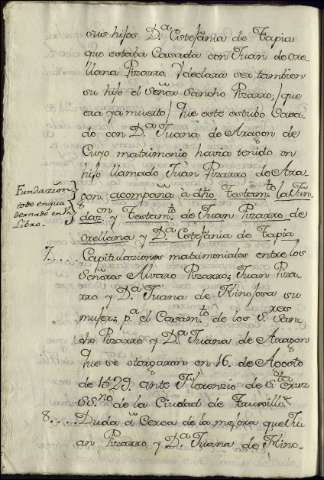 sus hijos D.ª Estefania de Tapia
que estaba Casada con Juan de ore-
llana Pizarro, y declara ser tambien
su hijo el señor Sancho Pizarro, (que
era ya muerto) que este estubo Casa-
do con D.ª Juana de Aragon de
Cuyo matrimonio havia tenido un
hijo llamado Juan Pizarro de Ara-
gon acompaña a dho Testam.to la Fun-
daz.on y Testam.to de Juan Pizarro de
Orellana y D.ª Estefania de Tapia
Fundacion
esta en
Libro.
7..... Capitulaciones matrimoniales entre los
Señores Alvaro Pizarro; Juan Piza-
rro y D.ª Juana de Hinojosa su
muger; p.ª el Casam.to de los S.res San-
cho Pizarro y D.ª Juana de Aragon
que se otorgaron en 16. de Agosto
de 1629. ante Lorenzo de
Es.no de la Ciudad de Truxillo
8..... Duda Cerca de la mejora que Ju-
an Pizarro y D.ª Juana de Hino-